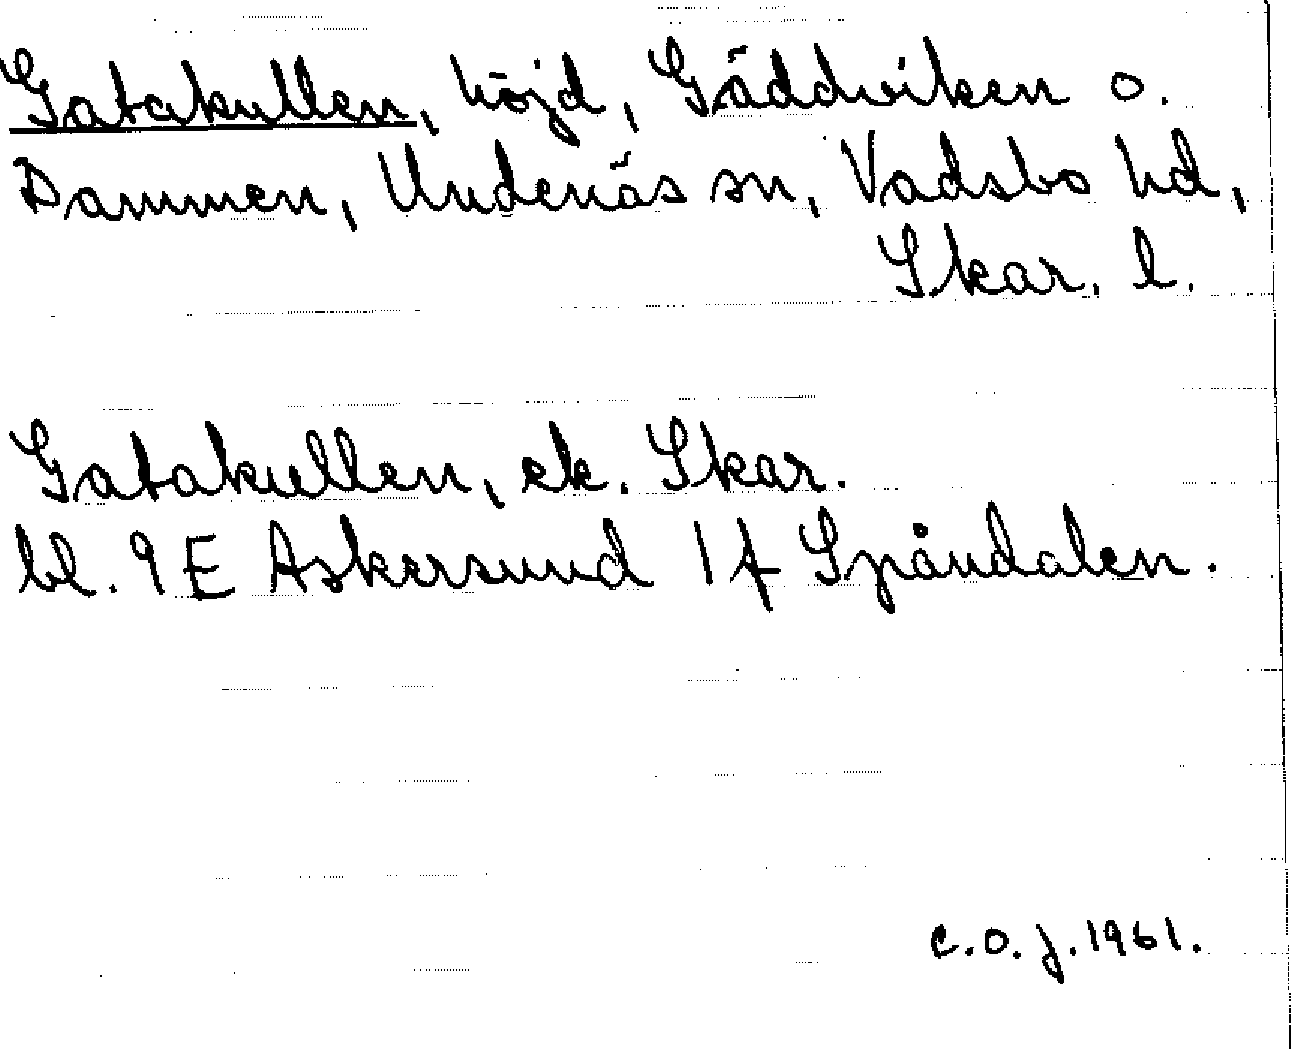 Gatakullen, höjd, Gäddviken o.
Dammen, Undenäs sn, Vadsbo hd,
Skar. l.
Gatakullen, ek. Skar.
bl. 9E Askersund 1f Spåndalen.
C.O.J. 1961.